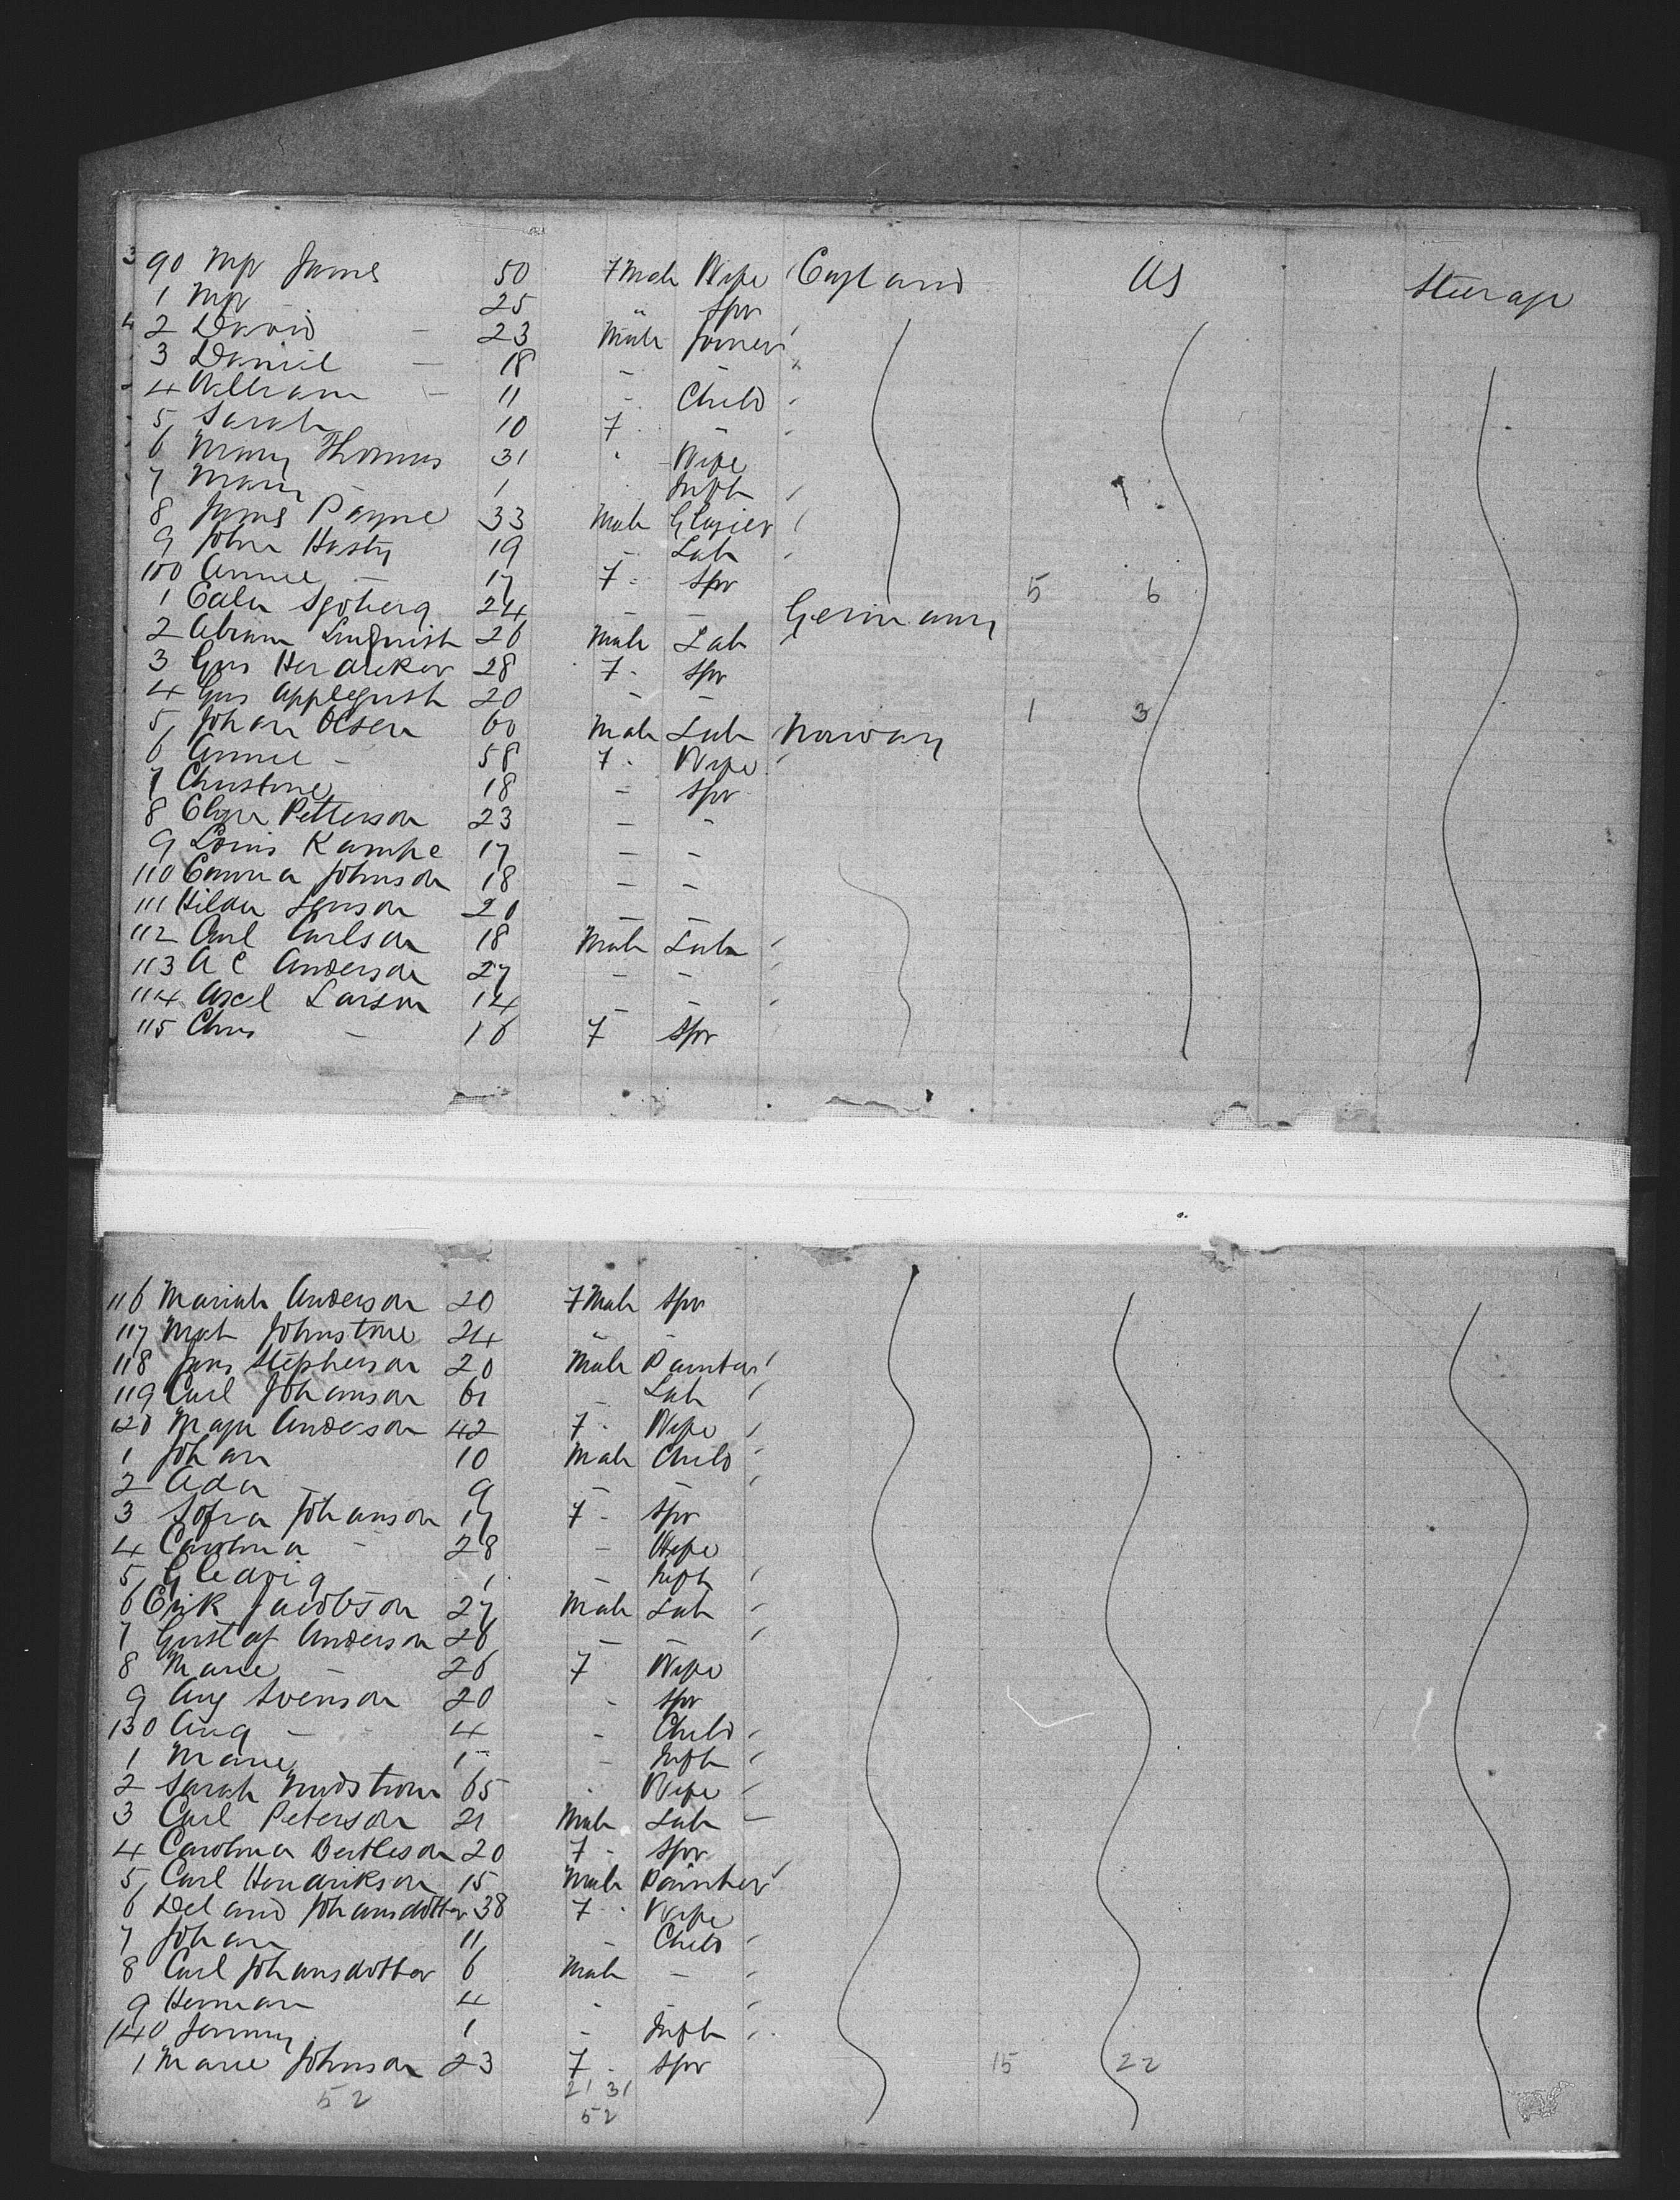 90 Mr James 50 7 Male Wife England US Steerage
1 Mr 25 " Spr
2 David - 23 Male Joiner
3 Daniel - 18 - -
4 William - 11 - Child
5 Sarah 10 7 -
6 Mary Thomas 31 Wife
7 Mary - 1 Infth
8 James Payne 33 Male Glazier
9 John Hasty 19 - Lab
100 Annie - 17 7 Spr 5 6
1 Sjoberg 24 - - Germany
2 Abram Lindquist 26 Male Lab
3 Gus 28 7 - Spr
4 Gus Applequist 20 - - 1 3
5 Johan Olsen 60 Male Lab Norway
6 Annie - 58 7 Wife
7 Christine 18 - Spr
8 Petterson 23 - -
9 Louis Kampe 17 - -
110 Emma Johnson 18 - -
111 Hilda 20 - -
112 Carl Carlson 18 Male Lab
113 A C Anderson 27 - -
114 Axel Larson 14 - -
115 Chris - 16 7 Spr
116 Mariah Anderson 20 7 Male Spr
117 Johnstone 24 - -
118 Jans Stephenson 20 Male Painter
119 Carl Johanson 61 - Lab
120 Maja Anderson 42 7 - Wife
1 Johan 10 Male Child
2 Ada - 9 - -
3 Sofia Johanson 17 7 - Spr
4 Carolina - 28 - Wife
5 1 - Infth
6 Erik Jacobson 27 Male Lab
7 Gustaf Anderson 26 - -
8 Marie - 26 7 Wife
9 Aug Svenson 20 - Spr
130 Aug - 4 - Child
1 Marie 1 - Infth
2 Sarah 65 Wife
3 Carl Peterson 21 Male Lab
4 Carolina Bertleson 20 7 - Spr
5 Carl Hendrikson 15 Male Painter
6 Johansdotter 38 7 Wife
7 Johan 11 - Child
8 Carl Johansdotter 6 Male -
9 Herman 4 - -
140 1 - Infth
1 Marie Johnson 23 7 Spr 15 22
52 21 31
52